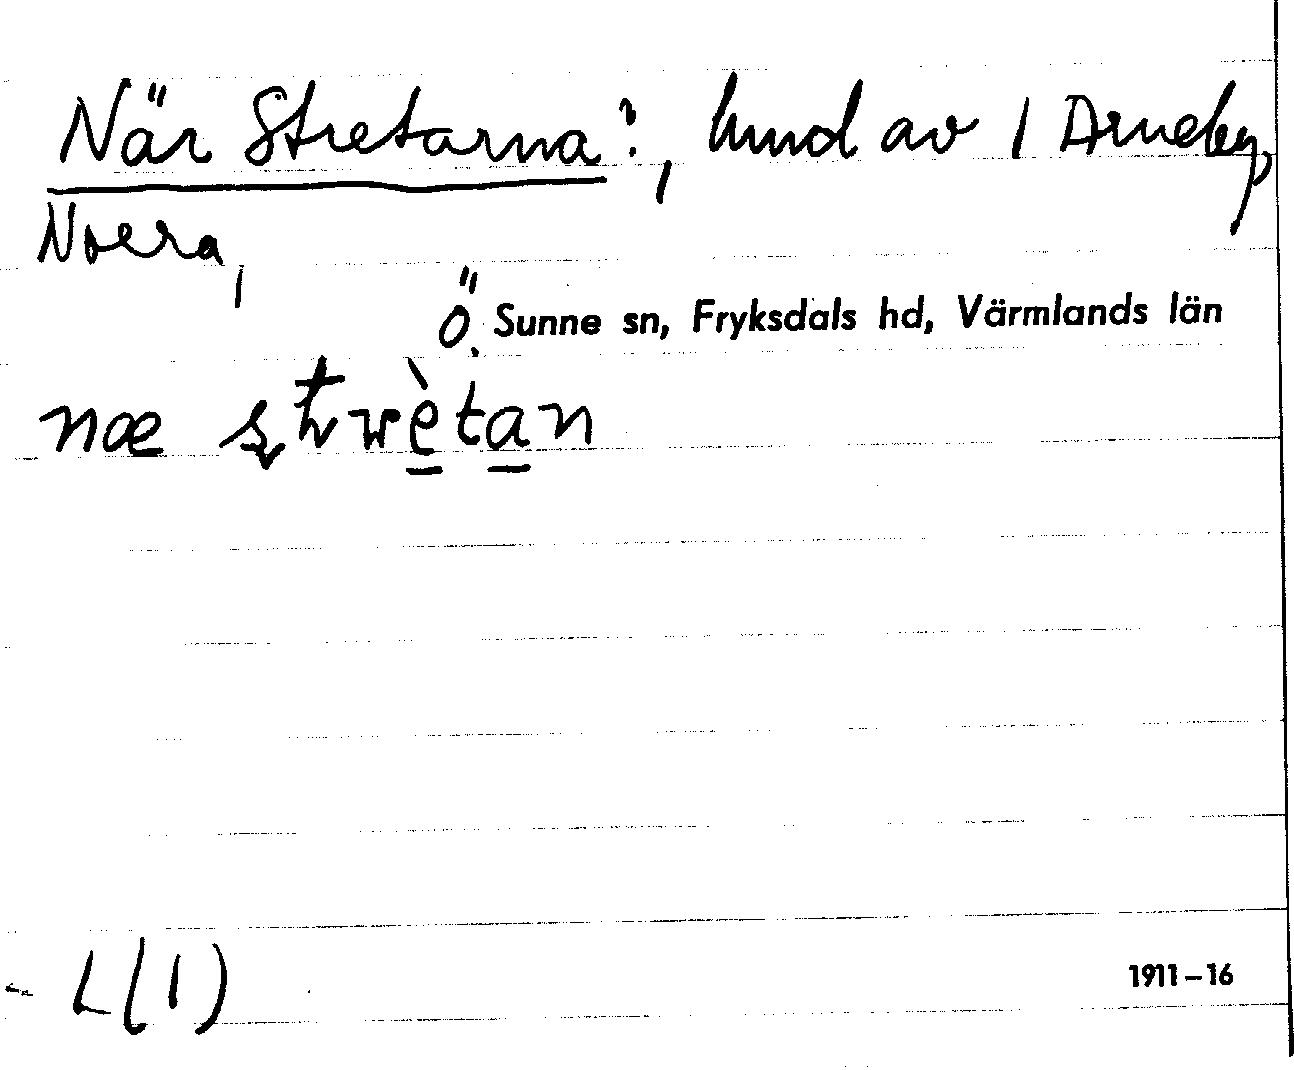 När Stretarna:, hmd av 1 Arneby,
Noera,
Ö. Sunne sn, Fryksdals hd, Värmlands län
næ
L(1)
1911-16